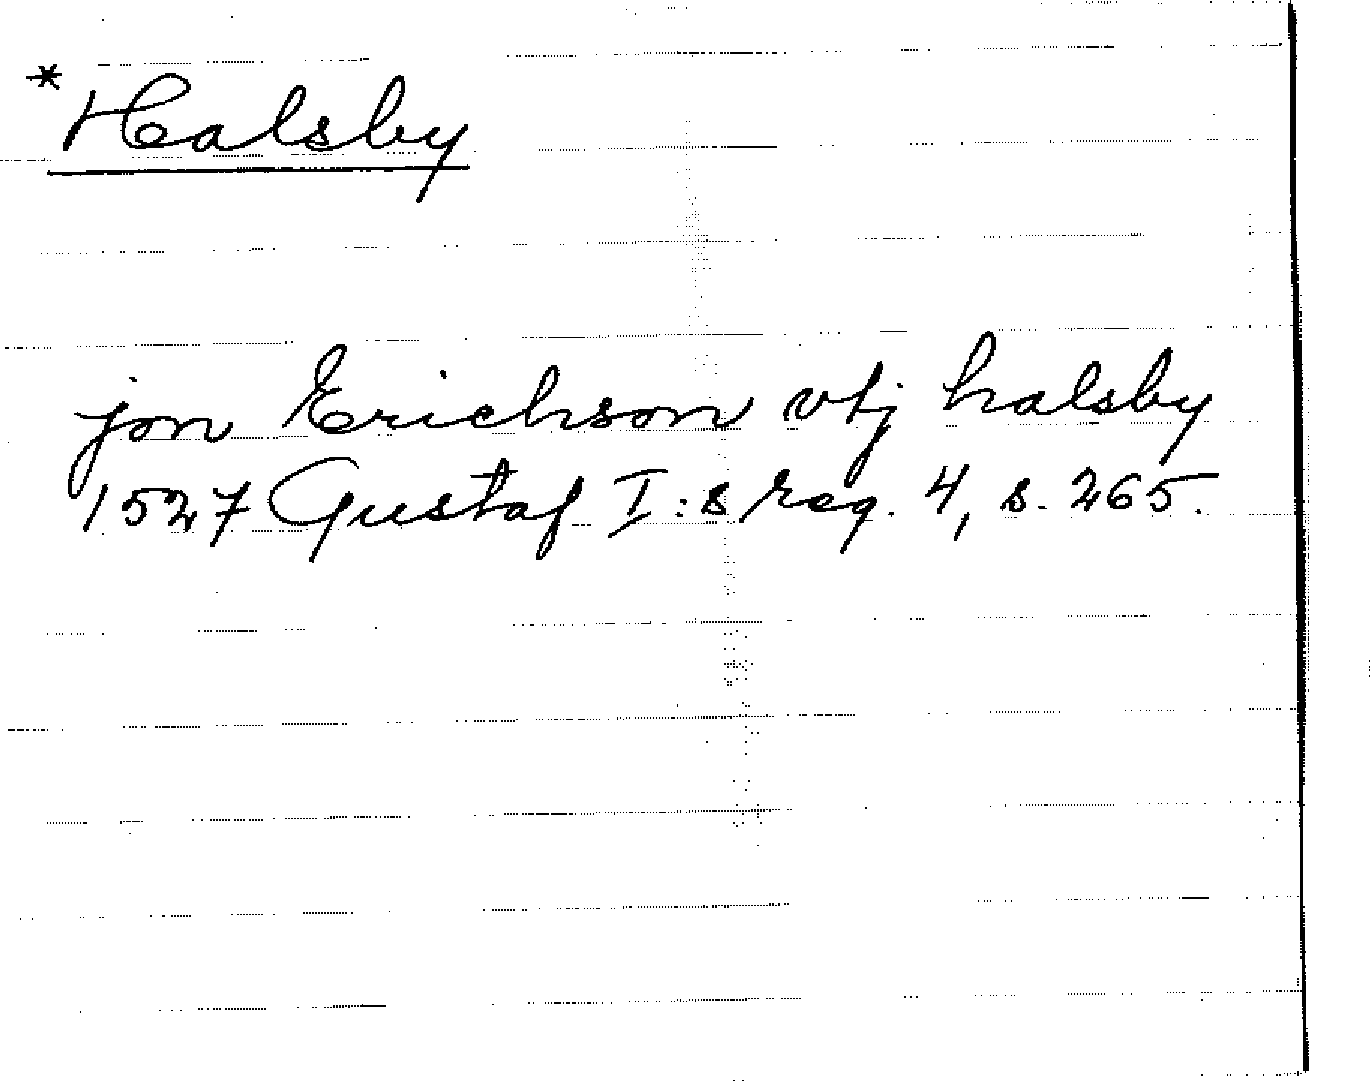 *Halsby
jon Erichson vtj halsby
1527 Gustaf I:s reg. 4, s. 265.